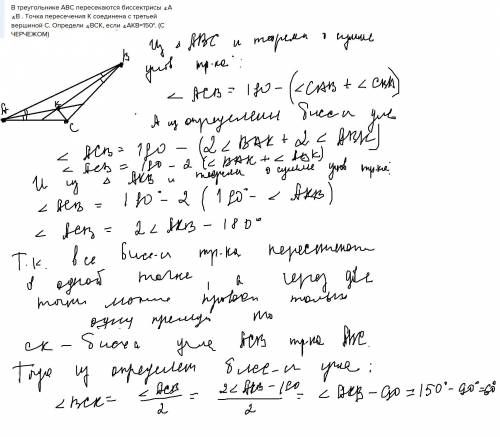 В треугольнике ABC пересекаются биссектрисы ∡A
∡B . Точка пересечения K соединена с третьей
вершиной C. Определи ∡BCK, если ∡AKB=150°. (С
ЧЕРЧЕЖОМ)
A B K C
Из △ ABC и теорема о сумме
углов тр-ка:
∠ ACB = 180 - (∠CAB + ∠CBA)
А из определения бисс-и угла
∠ ACB = 180 - (2∠BAK + 2∠ABK)
∠ ACB = 180 - 2 (∠BAK + ∠ABK)
И из △ AKB и теорема о сумме углов тр-ка:
∠ ACB = 180° - 2 (180° - ∠ AKB)
∠ ACB = 2∠ AKB - 180°
Т.к. все бисс-и тр-ка
в одной точке, а через две
точки можно провести только
одну прямую то
CK - бисс-а угла ACB тр-ка ABC.
Тогда из определен бисс-и угла:
∠BCK = ∠ACB/2 = 2∠AKB - 180/2 = ∠AKB - 90 = 150° - 90° = 60°